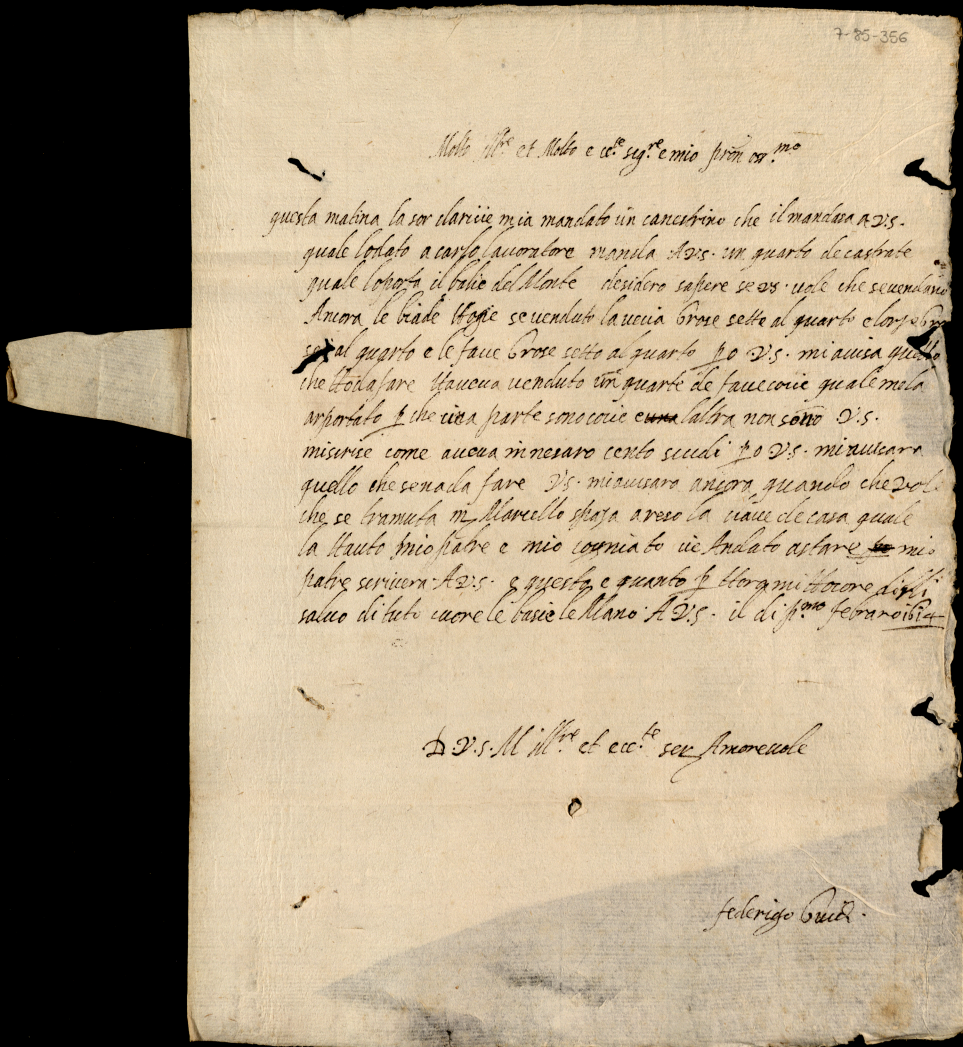 7-85-356
Molto Ill.re et Molto ecc.te sig.re e mio pron oss.mo
questa matina la sor clarice mia mandato un canestrino che il mandasa a V.S.
quale lo dato a carlo lavoratore manda A V.S. un quarto de castrate
quale lo porta il balie del Monte desidero sapere se VS. vole che se vendano
Ancora le biade Hogie se venduto la vecia Grose sette al quarto e
al quarto e le fave Grose setto al quarto po V.S. mi avisa quello
che Ho da fare Haveva venduto un quarte de fave cocie quale me la
arportato p che una parte sono cocie e una laltra non sono V.S.
miscrise come aveva in nesaro cento scudi po V.S. mi avisara
quello che se na da fare V.S. mi avisara ancora quando che vole
che se tramuta m Marcello spaza a reso la ciave de casa quale
la Hauto mio patre e mio cogniato cie Andato astare mio
patre scrivera A V.S. e questo e quanto p Hora mi Hocore dirli
salvo di tuto cuore le basie le Mano A V.S. il di p.mo febraro 1614
D V.S. M Ill.re et ecc.te ser Amorevole
federigo Guidi